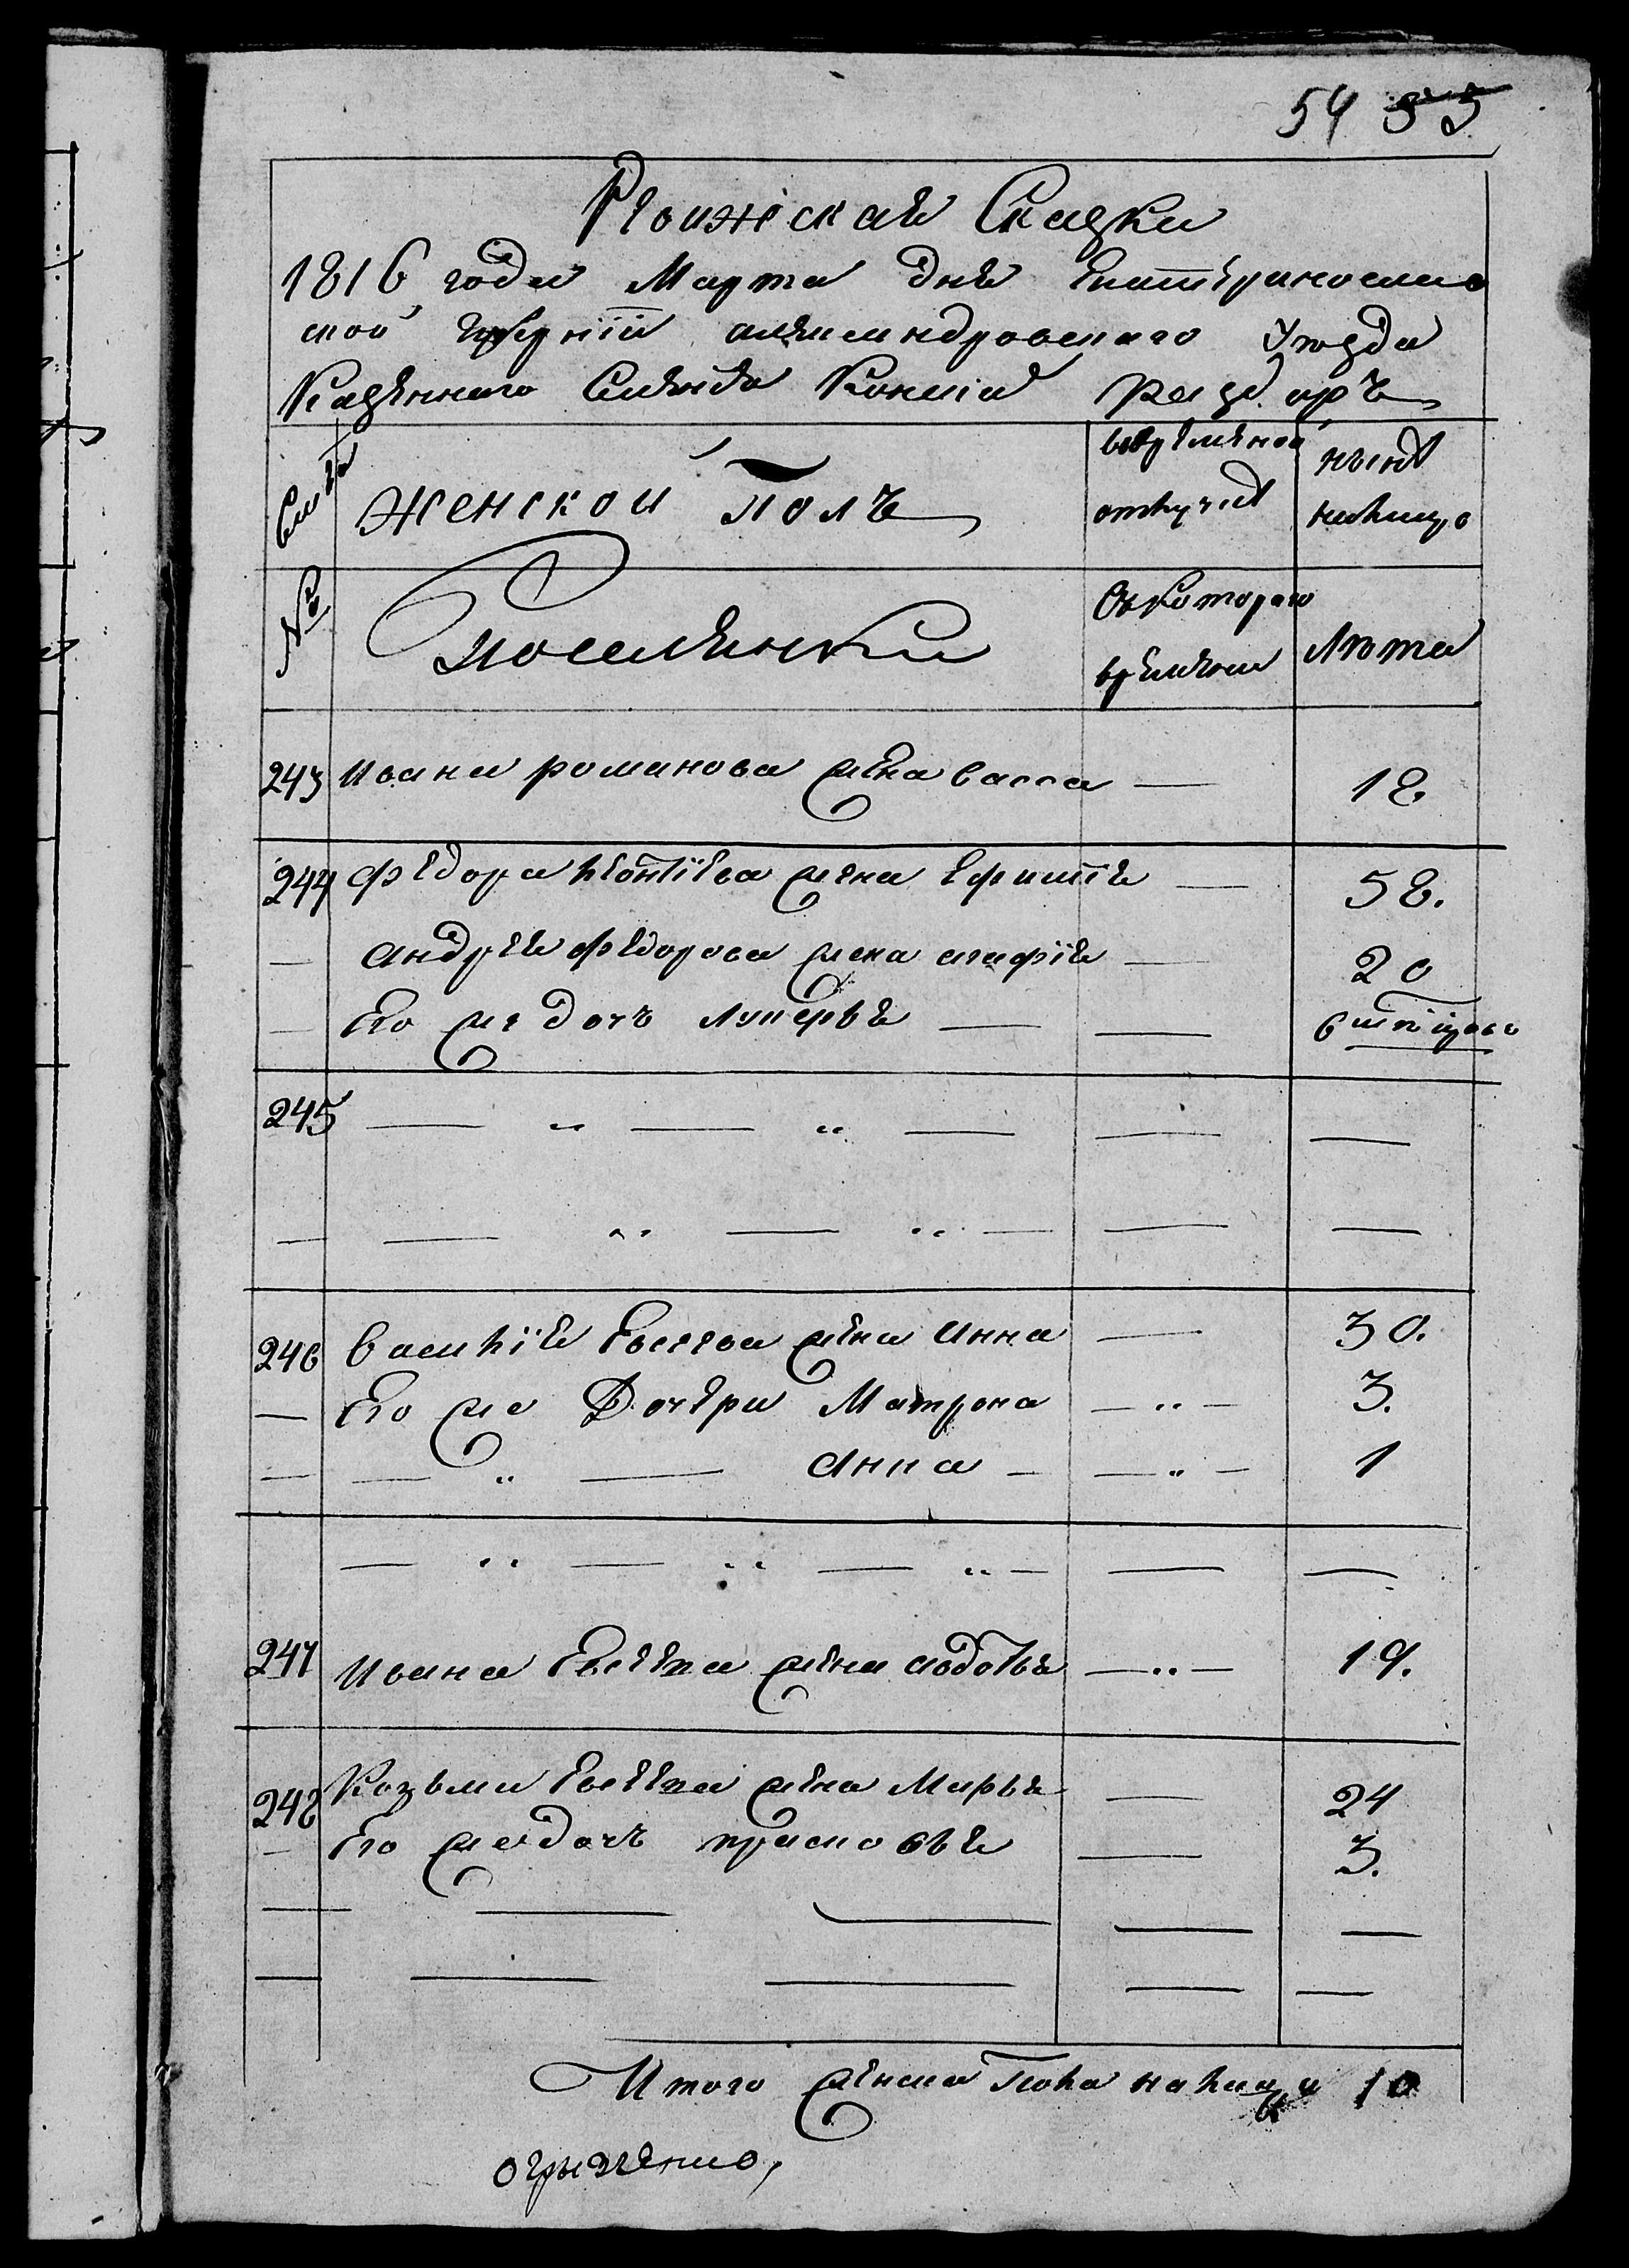 54 55
Ревижская Сказка
1816 года Марта дня Екатеринослав
ской губернiи александровскаго Уезда
Казеннаго Селенiя Конских раздоръ
Семьи
женской полъ
вовременной
отлучке
ныне
налицо
№
поселянки
Съ котораго
времяни
лета
243 ивана романова жена васса — 18
244 федора леонтiева жена ефимiя — 58.
— андрея федорова жена агафiя — 20
— Его же дочь лукерья — — 6
245 — " — " — — —
— — " — " — — —
246 василiя Евсеева жена Анна — 30.
— Его же Дочери Матрона — " — 3.
— — " — Анна — — " — 1
— " — " — " — — —
247 ивана Евсеева жена авдотья — " — 19.
248 Козьмы Евсеева жена Марья — 24
— Его же дочь прасковья — 3.
Итого женска пола налицо 10